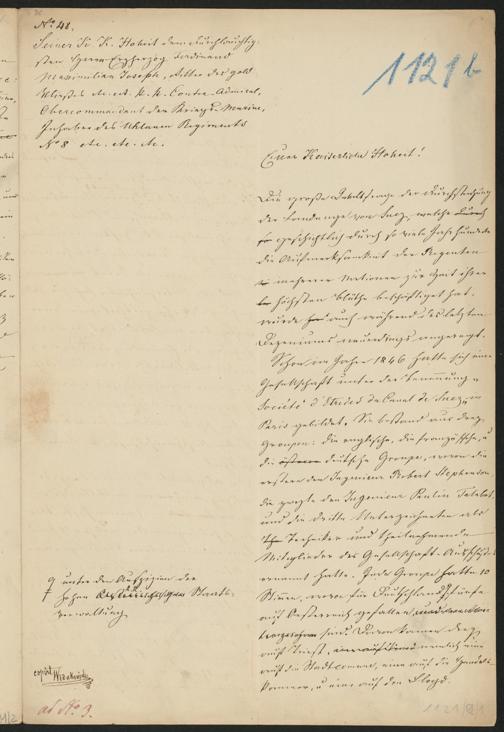 No 48.
Seiner k. k. Hoheit dem durchlauchtig-
sten Herrn Erzherzog Ferdinand
Maximilian Joseph, Ritter des gold.
Vließes etc. etc. k. k. Contre-Admiral,
Obercommandant der Kriegs-Marine,
Inhaber des Uhlanen Regiments
No 8 etc. etc. etc.
1121 b
Euer Kaiserliche Hoheit!
Die große Weltfrage der Durchstechung
der Landenge von Suez, welche durch
geschichtlich durch so viele Jahrhunderte
die Aufmerksamkeit der Regenten
mehrerer Nationen zur Zeit ihrer
höchsten Blüthe beschäftiget hat,
wurde auch während des letzten
Dezeniums neuerdings angeregt.
Schon im Jahre 1846 hatte sich eine
Gesellschaft unter der Benennung „
Société d'Etudes du Canal de Suez" in
Paris gebildet. Sie bestand aus drey
Groupen: die englische, die französische, u
die deutsche Groupe, wovon die
erstere den Ingenieur Robert Stephenson
die zweyte den Ingenieur Paulin Talabot,
und die dritte Unterzeichneten als
Techniker und theilnehmende
Mitglieder des Gesellschaft-Ausschußes
ernannt hatte. Jede Groupe hatte 10
Stimmen, wovon für Deutschland fünfe
auf Oesterreich gefallen,
sind. Davon kamen drey
auf Triest, nemlich eine
auf die Stadtcomune, eine auf die Handels-
kammer, u eine auf den Lloyd.
unter den Auspizien der
hohen Staats-
verwaltung
copirt
ad No 3.
1121/2/1